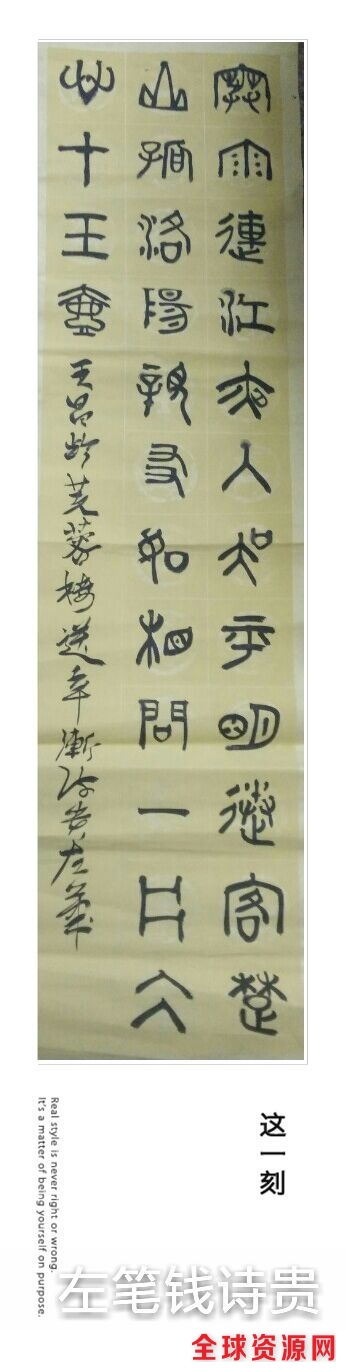 寒雨連江夜入吳平明送客楚
山孤洛陽親友如相問一片冰
心在玉壺
王昌龄芙蓉楼送辛漸诗贵左筆
这一刻
Real style is never right or wrong.
It's a matter of being yourself on purpose.
左笔钱诗贵
全球资源网